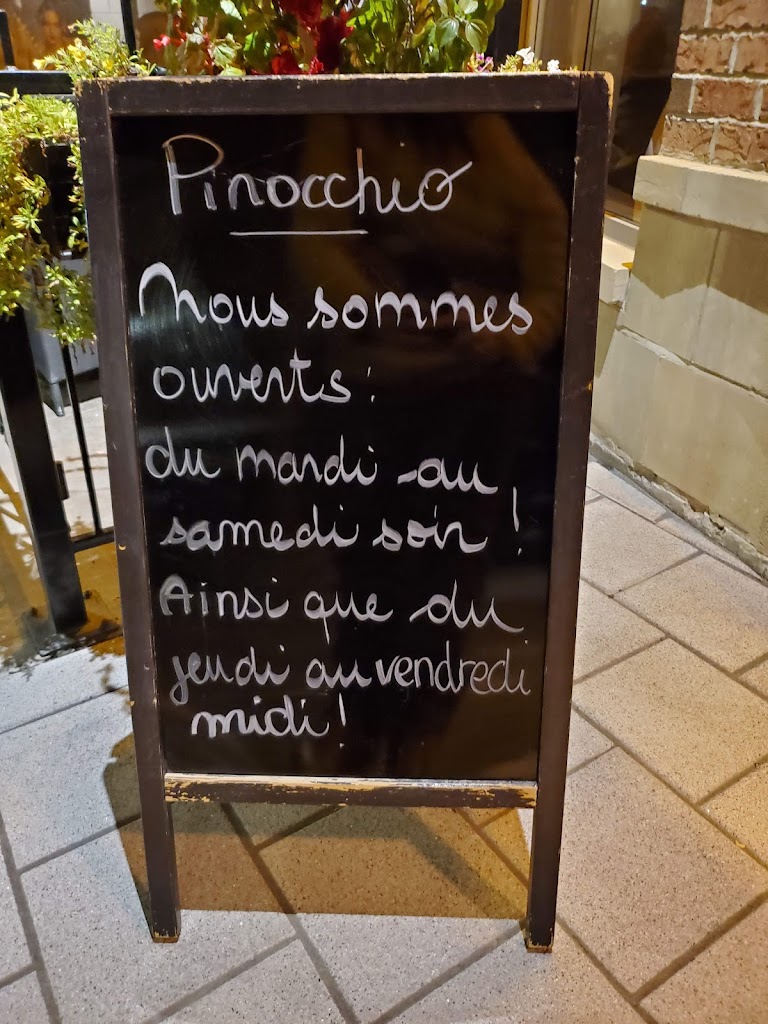 Pinocchio
Nous sommes
ouverts :
du mardi au
samedi soir !
Ainsi que du
jeudi au vendredi
midi !